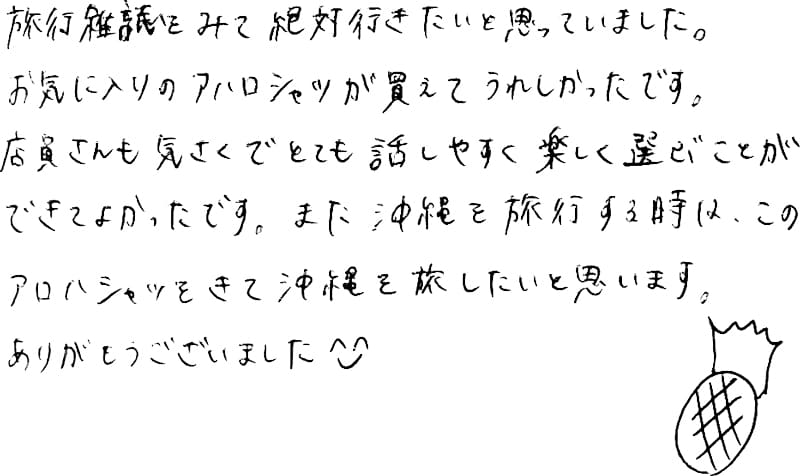 旅行雑誌をみて絶対行きたいと思っていました。
お気に入りのアハロシャツが買えてうれしかったです。
店員さんも気さくでとても話しやすく楽しく選ぶことが
できてよかったです。また沖縄を旅行する時は、この
アロハシャツをきて沖縄を旅したいと思います。
ありがとうございました